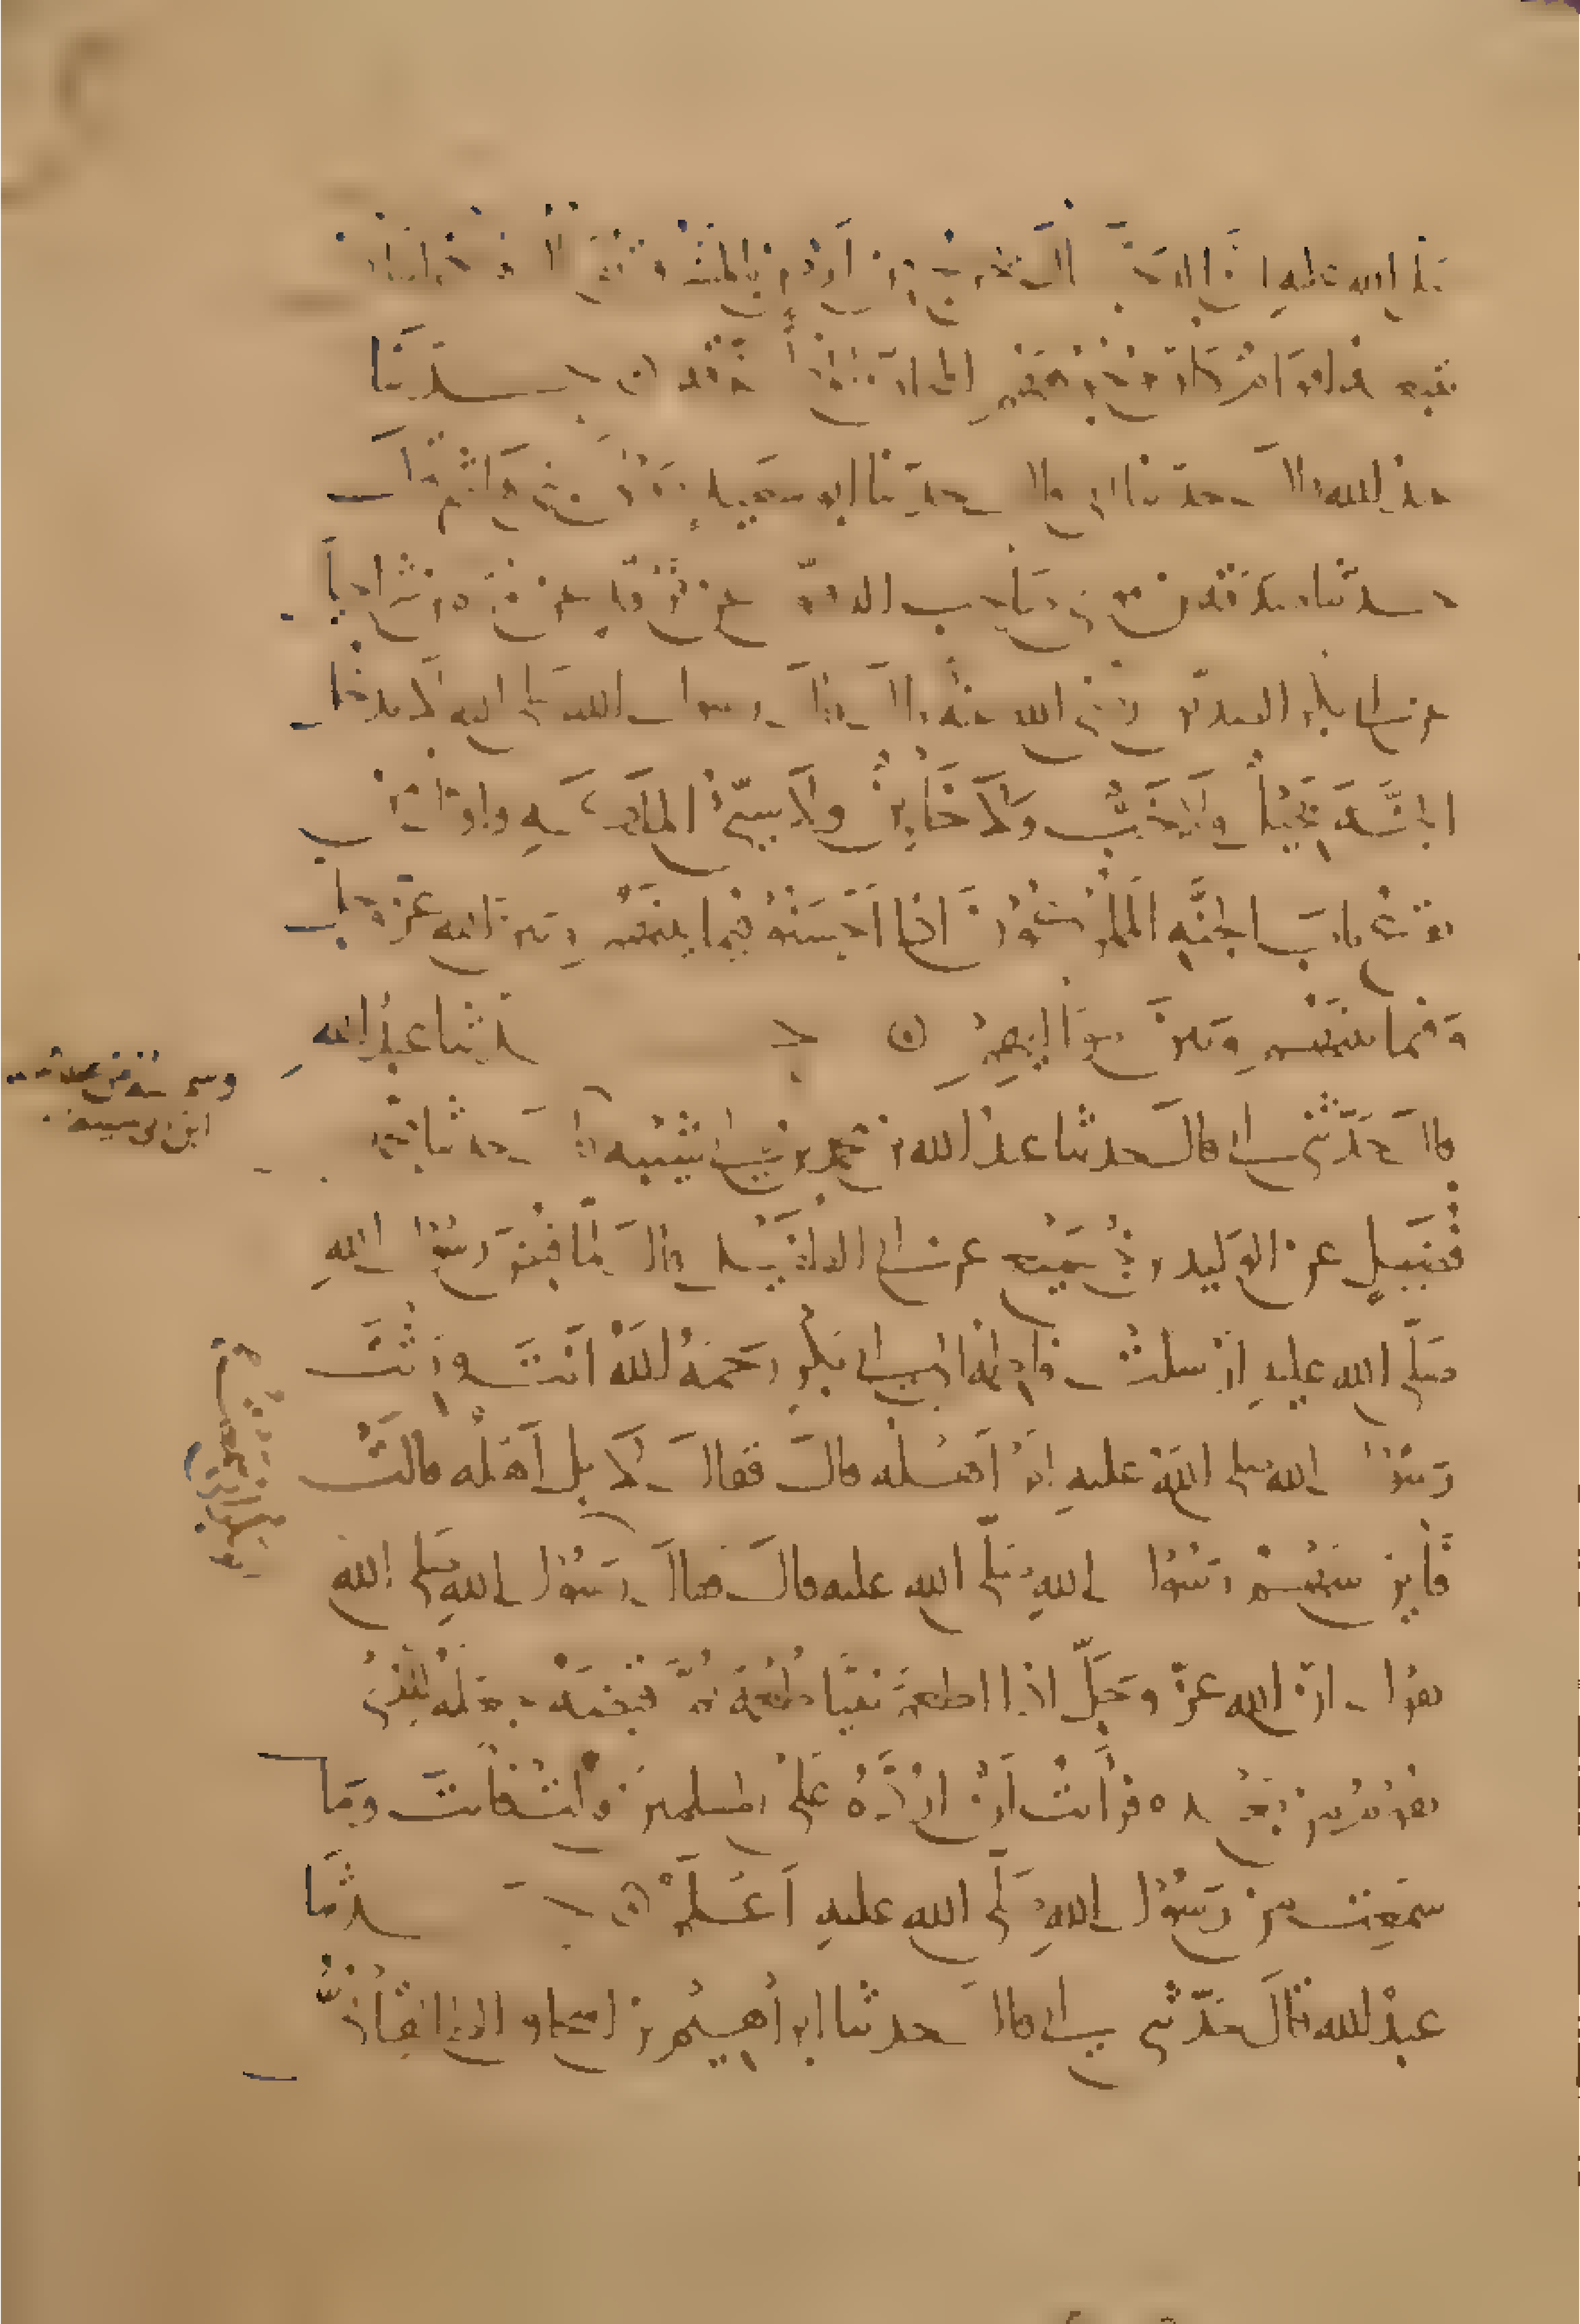 صلى الله عليه ان الدجال يخرج من ارض بالمشرق يقال لها خراسان
يتبعه اقوام كان وجوههم المجان المطرقة ه حدثنا
عبد الله قال حدثنا ابي قال حدثنا ابو سعيد مولى بني هاشم قال
حدثنا صدقة بن موسى صاحب الدقيق عن فرقد عن مرة بن شراحيل
عن ابي بكر الصديق رضي الله عنه قال قال رسول الله صلى الله لا يدخل
الجنة بخيل ولا خب ولا خائن ولا سيئ الملكة واول من
يقرع باب الجنة المملوكون اذا احسنوا فيما بينهم وبين الله عز وجل
وفيما بينهم وبين مواليهم ه حدثنا عبد الله
قال حدثني ابي قال حدثنا عبد الله بن محمد بن ابي شيبة قال حدثنا محمد بن
فضيل عن الوليد بن جميع عن ابي الطفيل قال لما قبض رسول الله
صلى الله عليه ارسلت فاطمة الى ابي بكر رحمه الله انت ورثت
رسول الله صلى الله عليه ام اهله قال فقال لا بل اهله قالت
فاين سهم رسول الله صلى الله عليه قال فقال رسول الله صلى الله
يقول ان الله عز وجل اذا اطعم نبيا طعمة ثم قبضه جعله للذي
يقوم من بعده فرايت ان ارده على المسلمين قالت فانت وما
سمعت من رسول الله صلى الله عليه اعلم ه حدثنا
عبد الله قال حدثني ابي قال حدثنا ابراهيم بن اسحاق الطالقاني